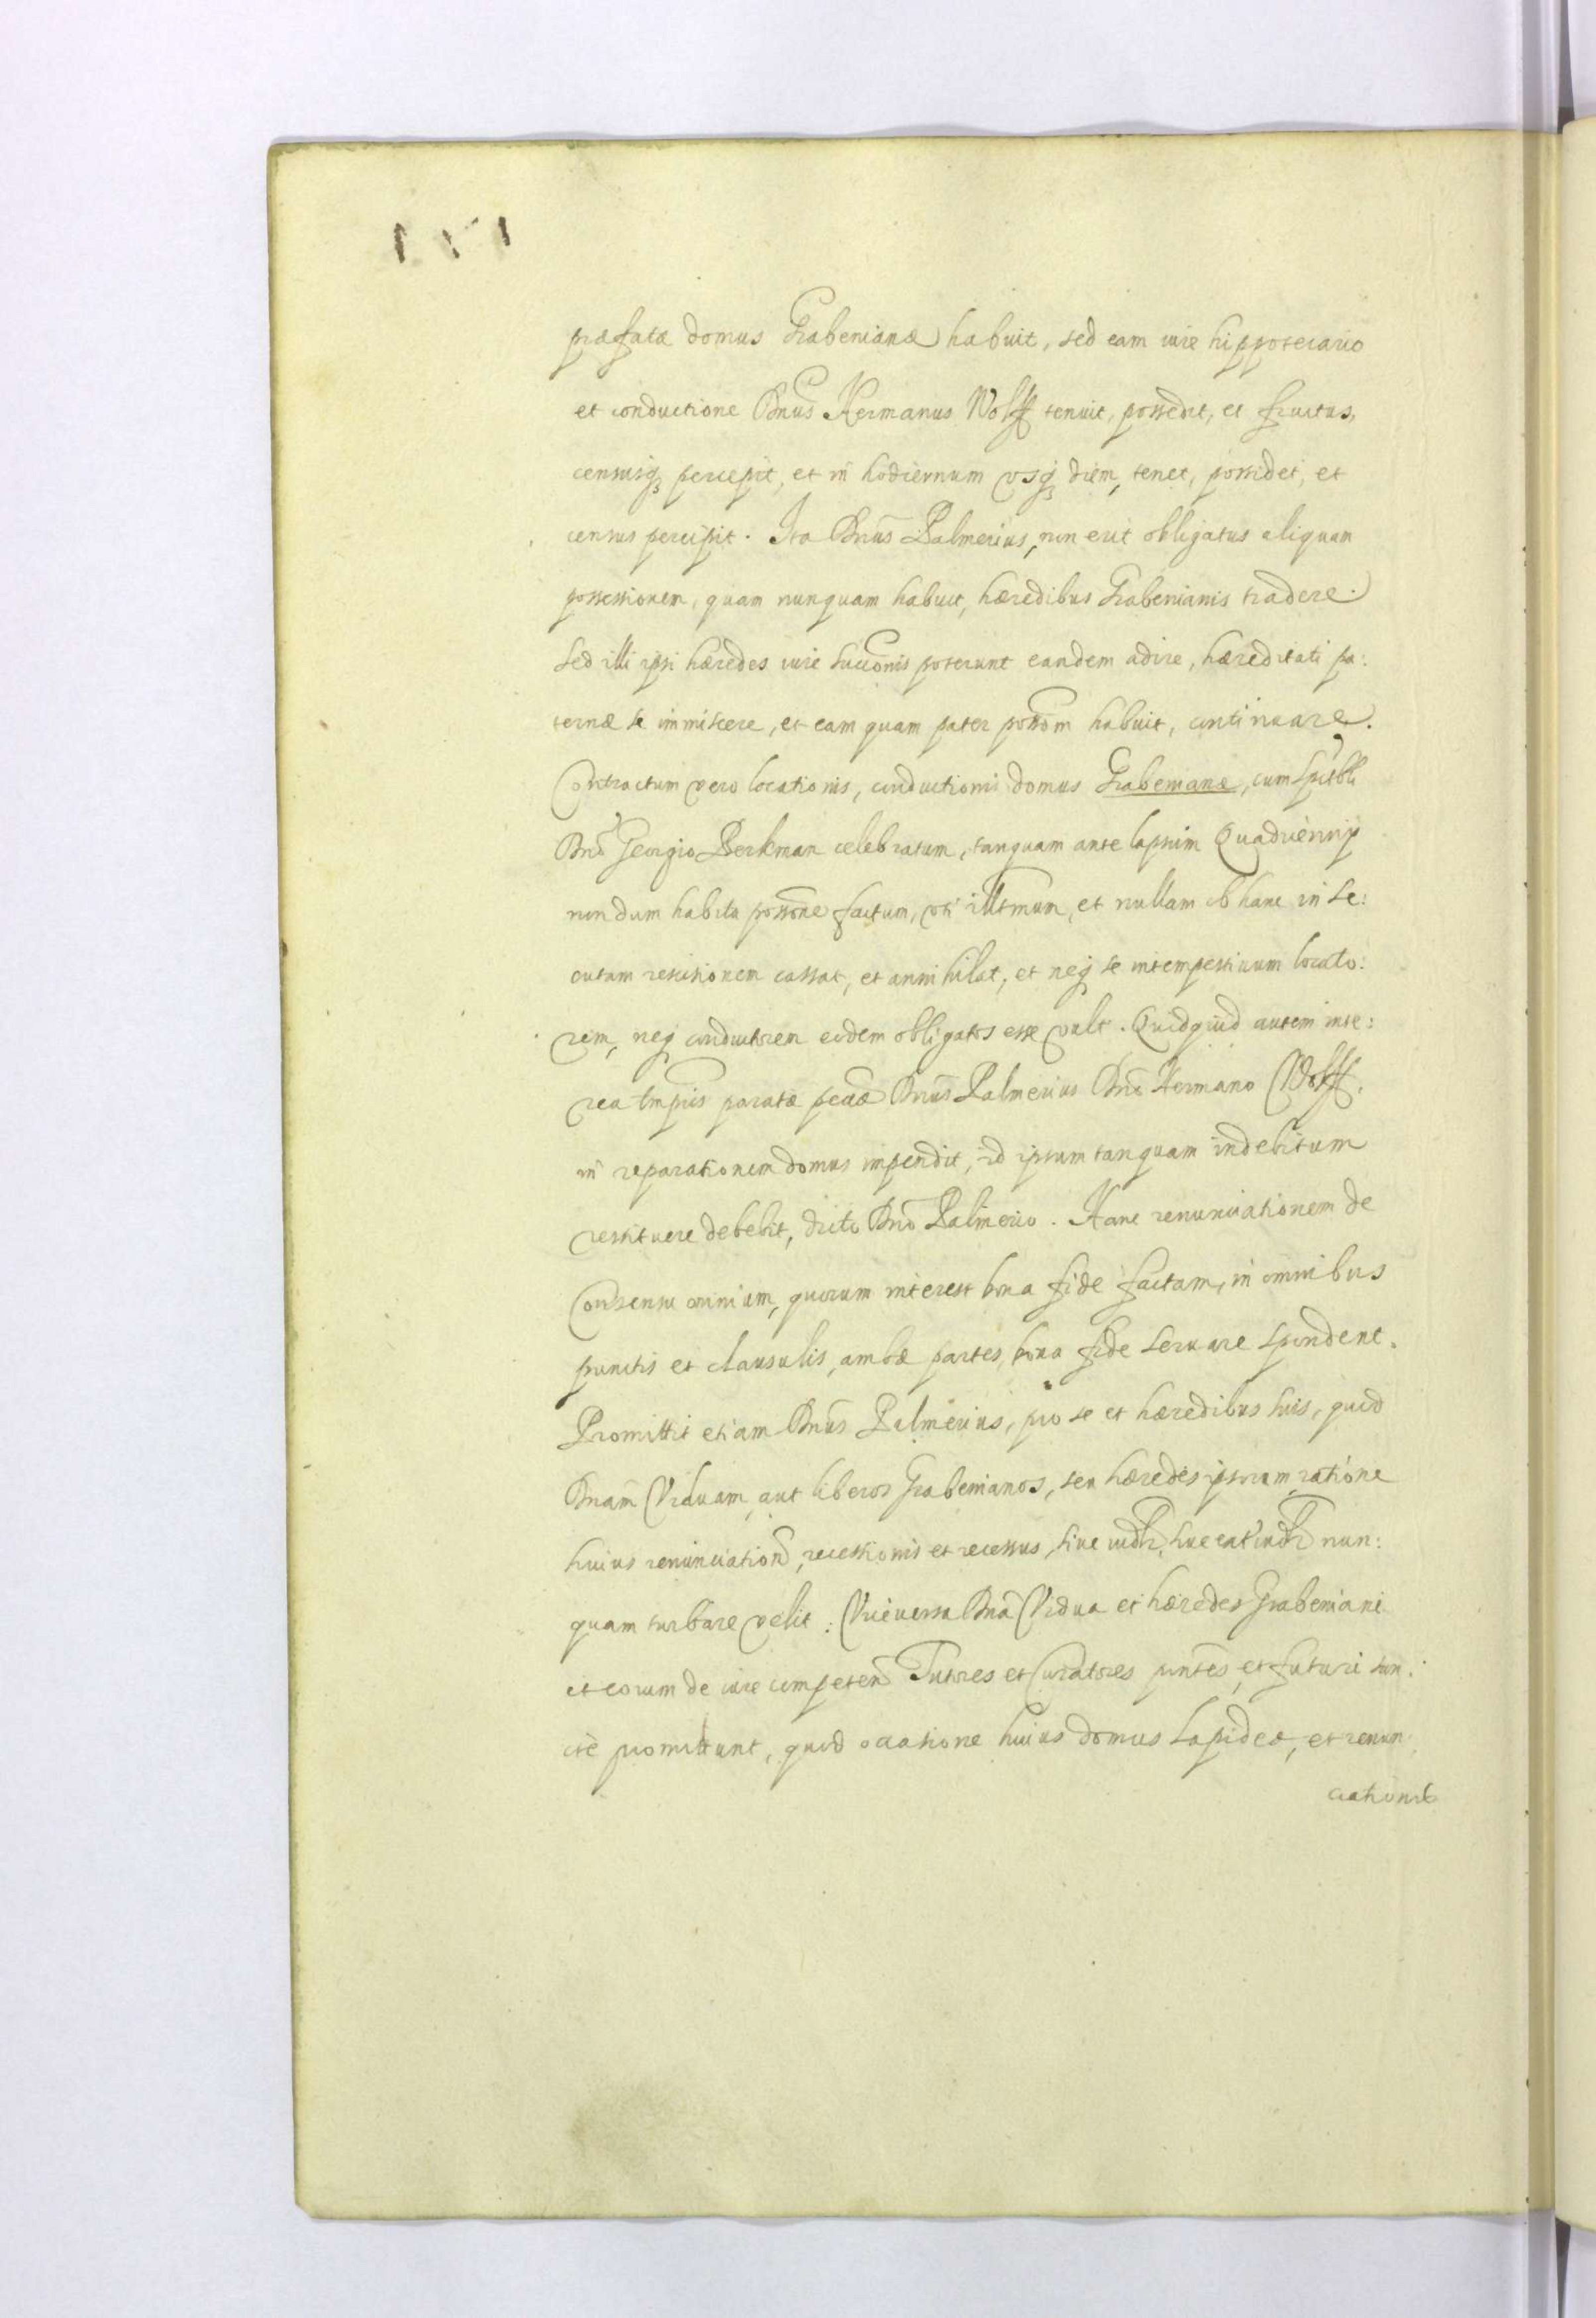 præfatæ domus Grabenianæ habuit, sed eam iure hippotecario
et conductione Dnus Hermanus Wolff tenuit, possedit, et fructus,
censusq3 percepit, et in hodiernum vsq3 diem, tenet, possidet, et
census percipit. Ita Dnus Palmerius, non erit obligatus aliquam
possessionem, quam nunquam habuit, hæredibus Grabenianis tradere.
Sed illi ipsi hæredes iure succōnis poterunt eandem adire, hæreditati pa:
ternæ se immiscere, et eam quam pater possōm habuit, continuare.
Contractum vero locationis, conductionis domus Grabenianæ, cum Spctbli
Dnō Georgio Berkman celebratum, tanquam ante lapsum Quadriennij
nondum habita possōne factum, vti illtmum, et nullam ob hanc in se:
cutam rescisionem cassat, et annihilat, et neq se intempestiuum locato:
rem, neq conductorem eidem obligatos esse vult. Quidquid autem inte:
rea tmpris paratæ pecæ Dnus Palmerius Dnō Hermano Wolff.
in reparationem domus impendit, id ipsum tanquam indebitum
restituere debebit, dicto Dnō Palmerio. Hanc renunciationem de
Consensu omnium, quorum interest bona fide factam, in omnibus
punctis et clausulis, ambæ partes, bona fide seruare spondent.
Promittit etiam Dnūs Palmerius, pro se et hæredibus suis, quod
Dnam Viduam, aut liberos Grabenianos, seu hæredes ipsorum, ratione
huius renunciation, recessionis et recessus, siue iudlr, siue extiudlr nun:
quam turbare velit: Viceuersa Dnā Vidua et hæredes Grabeniani
et eorum de iure competen Tutores et Curatores pntes, et futuri
promittunt, quod occasione huius domus Lapideæ, et renun:
ciationis